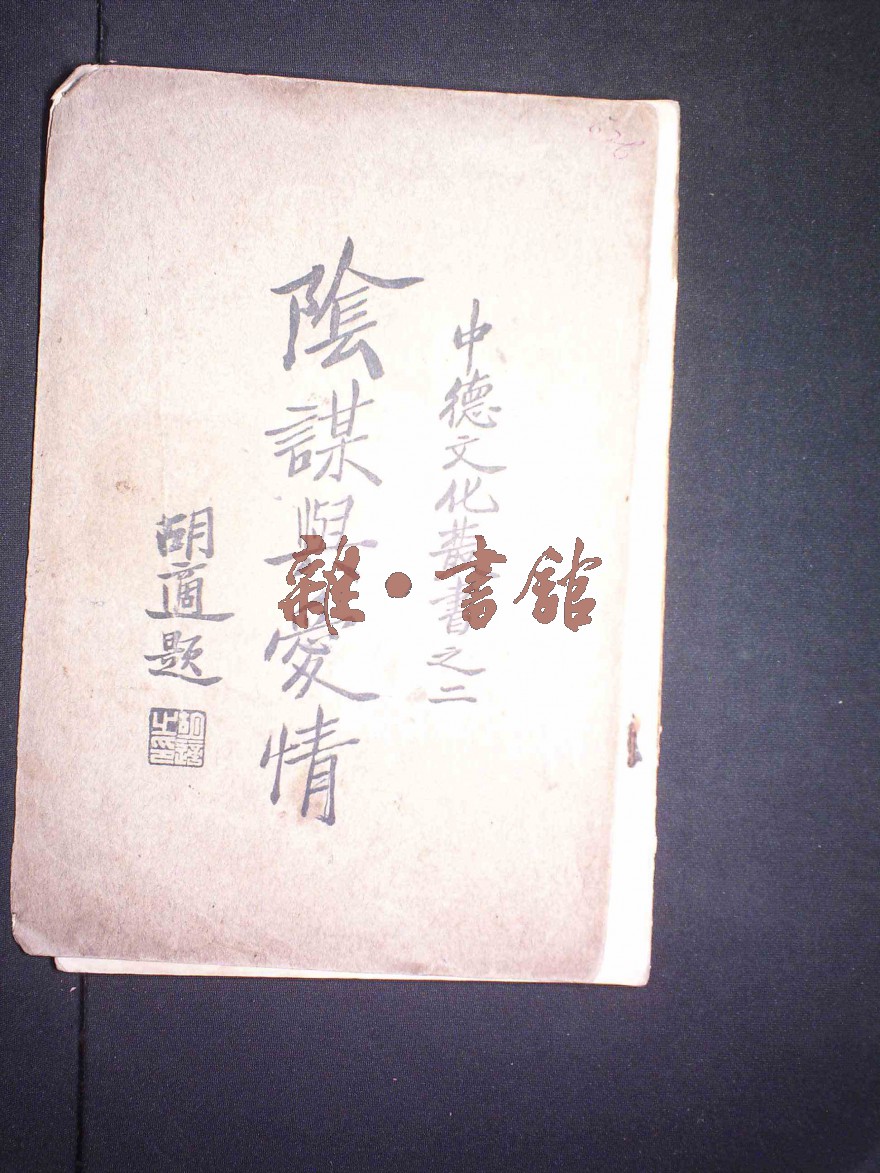 中德文化叢書之二
陰謀與愛情
胡適題
胡適之印
雜·書館